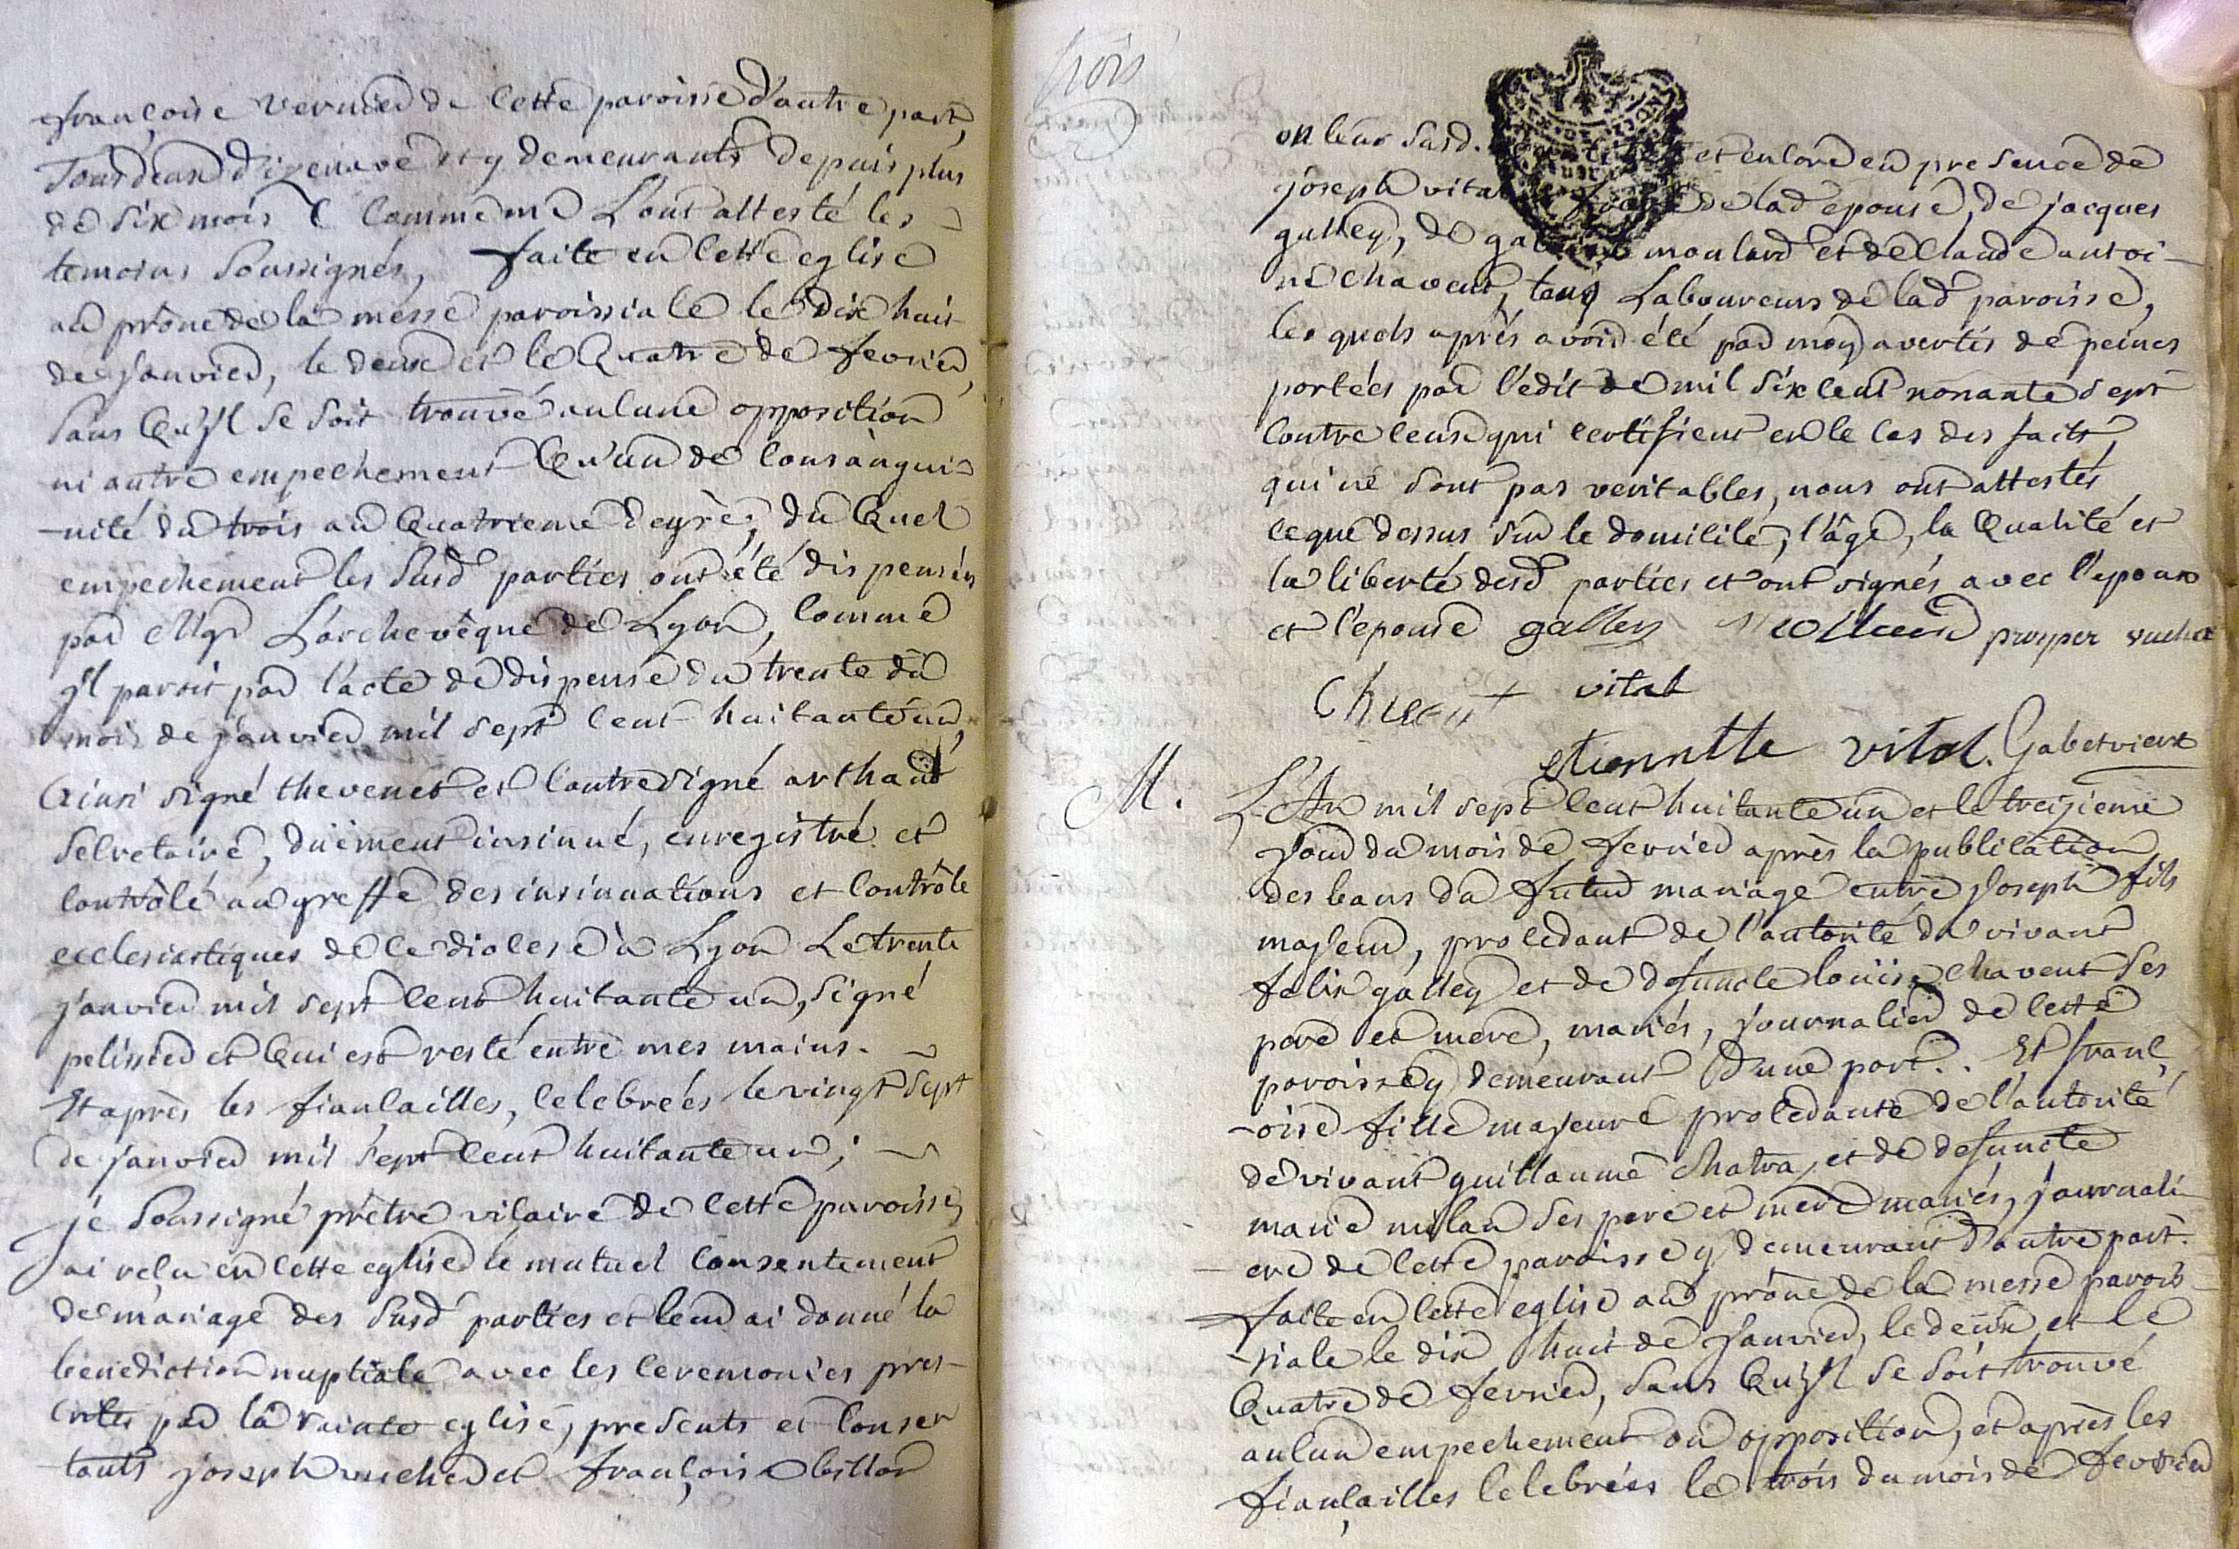 françoise vernier de cette paroisse d'autre part,
Tous deux d'izenave et y demeurants depuis plus
de six mois comme me L'ont attesté les
temoins soussignés, faite en cette eglise
au prone de la messe paroissiale le dix huit
de janvier, le deux et le Quatre de fevrier,
sans Qu'jl se soit trouvé aucune opposition
ni autre empechement Qu'un de consangui-
-nité du trois au Quatrieme degrè; du Quel
empechement les susd parties ont été dispensées
par Mgr L'archevêque de Lyon, comme
jl paroit par l'acte de dispense du trente du
mois de janvier mil sept cent huitante un,
Ainsi signé thevenet et contresigné arthaud
secretaire, düement insinué, enregistré et
contrôlé au greffe des insinuations et contrôle
ecclesiastiques de ce diocese à Lyon Le trente
janvier mil sept cent huitante un, signé
pelissier et Qui est resté entre mes mains.
Et après les fiançailles, celebreés le vingt sept
de janvier mil sept cent huitante un;
je soussigné prêtre vicaire de cette paroisse,
ai reçu en cette eglise le mutuel consentement
de mariage des susd parties et leur ai donné la
bénédiction nuptiale avec les ceremonies pres-
crites par la sainte eglise, presents et consen
tants joseph vucher et françois
trois
on leur susd. et encore en presence de
joseph vital frere de lad epouse, de jacques
galley, de moulard et de Claude antoi-
ne chavent, tous Laboureurs de lad paroisse,
les quels après avoir été par moy avertis de peines
porteés par l'édit de mil six cent nonante sept
contre ceux qui certifient en le cas des faits
qui ne sont pas veritables, nous ont attestés
ce que dessus sur le domicile, l'âge, la Qualité et
la liberté desd parties et ont signés avec l'epoux
et l'epouse galley prosper vucher
Chavent vital
etiennette vital. Gabet vicaire
M. L'An mil sept cent huitante un et le treizieme
jour du mois de fevrier après la publication
des bans du futur mariage entre joseph fils
majeur, procedant de l'autorité du vivant
felix galley et de defuncte loüise chavent ses
pere et mere, mariés, journalier de cette
paroisse y demeurant d'une part. Et franç
-oise fille majeure procedante de l'autorité
de vivant guillaume Chatra, et de defuncte
marie milan ses pere et mere mariés, journali
ere de cette paroisse y demeurant d'autre part.
faite en cette église au prône de la messe parois
-siale le dix huit de janvier, le deux et le
Quatre de fevrier, sans Qu'jl se soit trouvé
aucun empechement ou opposition, et après les
fiançailles celebreés le trois du mois de fevrier